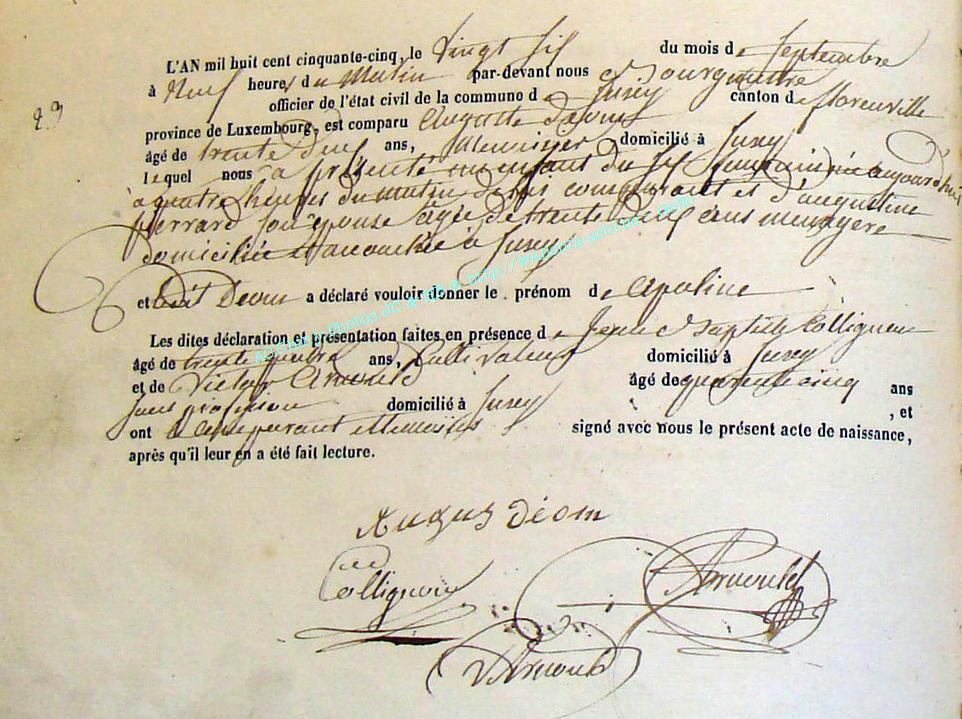 L'AN mil huit cent cinquante-cinq, le vingt six du mois de Septembre
à neuf heures du matin par-devant nous Bourgmestre
29
officier de l'état civil de la commune de Jusey canton de florenville
province de Luxembourg, est comparu Auguste Déom
âgé de trente deux ans, Menuisier domicilié à Jusey
lequel nous a présenté un enfant du sexe feminin née aujourd'hui
à quatre heures du matin de lui comparant et d'augustine
pierrard son épouse agée de trente ans menagere
domiciliée et accouchée à Jusey
et ledit Deom a déclaré vouloir donner le prénom de apoline
Les dites déclaration et présentation faites en présence de Jean Baptiste Collignon
âgé de trente quatre ans, Cultivateur domicilié à Jusey
et de Victor Arnould âgé de quarante cinq ans
sans profession domicilié à Jusey , et
ont le comparant et temoins signé avec nous le présent acte de naissance,
après qu'il leur en a été fait lecture.
Augus déom
Collignon
Arnould
V Arnould